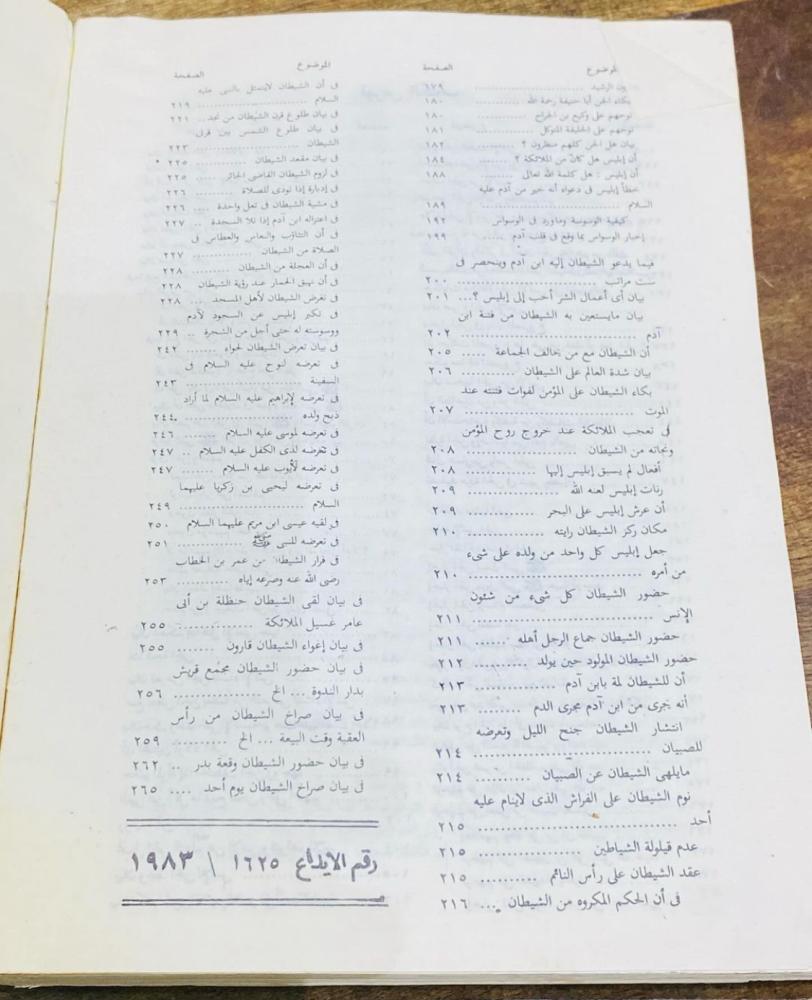 الموضوع الصفحة
ون الرشيد ١٧٩
بكاء الجن أبا حنيفة رحمة الله .......... ١٨٠
نوحهم على وكيع بن الجراح .......... ١٨٠
نوحهم على الخليفة المتوكل .......... ١٨١
بيان هل الجن كلهم منظرون ؟ ........ ١٨٢
أن إبليس هل كان من الملائكة ؟ ........ ١٨٤
أن إبليس : هل كلمه الله تعالى ........ ١٨٨
خطأ إبليس فى دعواه أنه خير من آدم عليه
السلام .................... ١٨٩
كيفية الوسوسة وماورد فى الوسواس ١٩٢
إخبار الوسواس بما وقع فى قلب آدم ..... ١٩٩
فيما يدعو الشيطان إليه ابن آدم وينحصر فى
ست مراتب .................... ٢٠٠
بيان أى أعمال الشر أحب إلى إبليس ؟... ٢٠١
بيان مايستعين به الشيطان من فتنة ابن
آدم .................... ٢٠٢
أن الشيطان مع من يخالف الجماعة ..... ٢٠٥
بيان شدة العالم على الشيطان .......... ٢٠٦
بكاء الشيطان على المؤمن لفوات فتنته عند
الموت .................... ٢٠٧
فى تعجب الملائكة عند خروج روح المؤمن
ونجاته من الشيطان .......... ٢٠٨
أفعال لم يسبق إبليس إليها .......... ٢٠٨
رنات إبليس لعنه الله .......... ٢٠٩
أن عرش إبليس على البحر .......... ٢٠٩
مكان ركز الشيطان رايته .......... ٢١٠
جعل إبليس كل واحد من ولده على شىء
من أمره .................... ٢١٠
حضور الشيطان كل شىء من شئون
الإنس .................... ٢١١
حضور الشيطان جماع الرجل أهله ...... ٢١١
حضور الشيطان المولود حين يولد .......... ٢١٢
أن للشيطان لمة بابن آدم .......... ٢١٣
أنه يجرى من ابن آدم مجرى الدم ........ ٢١٣
انتشار الشيطان جنح الليل وتعرضه
للصبيان .................... ٢١٤
مايلهى الشيطان عن الصبيان .......... ٢١٤
نوم الشيطان على الفراش الذى لاينام عليه
أحد .................... ٢١٥
عدم قيلولة الشياطين .......... ٢١٥
عقد الشيطان على رأس النائم .......... ٢١٥
فى أن الحكم المكروه من الشيطان .... ٢١٦
الموضوع الصفحة
فى أن الشيطان لايتمثل بالنبى عليه
السلام .................... ٢١٩
فى بيان طلوع قرن الشيطان من نجد .. ٢٢١
فى بيان طلوع الشمس بين قرنى
الشيطان .................... ٢٢٣
فى بيان مقعد الشيطان .......... ٢٢٥
فى لزوم الشيطان القاضى الجائر ..... ٢٢٥
فى إدباره إذا نودى للصلاة .......... ٢٢٦
فى مشية الشيطان فى نعل واحدة .... ٢٢٦
فى اعتزاله ابن آدم إذا تلا السجدة .. ٢٢٧
فى أن التثاؤب والنعاس والعطاس فى
الصلاة من الشيطان .......... ٢٢٧
فى أن العجلة من الشيطان .......... ٢٢٨
فى أن نهيق الحمار عند رؤية الشيطان ٢٢٨
فى تعرض الشيطان لأهل المسجد ... ٢٢٨
فى تكبر إبليس عن السجود لآدم
ووسوسته له حتى أجل من الشجرة .. ٢٢٩
فى بيان تعرض الشيطان لحواء ....... ٢٤٢
فى تعرضه لنوح عليه السلام فى
السفينة .................... ٢٤٣
فى تعرضه لإبراهيم عليه السلام لما أراد
ذبح ولده .................... ٢٤٤
فى تعرضه لموسى عليه السلام ....... ٢٤٦
فى تعرضه لذى الكفل عليه السلام .. ٢٤٧
فى تعرضه لأيوب عليه السلام ...... ٢٤٧
فى تعرضه ليحيى بن زكريا عليهما
السلام .................... ٢٤٩
فى لقيه عيسى ابن مريم عليهما السلام ٢٥٠
فى تعرضه للنبى ﷺ .......... ٢٥١
فى فرار الشيطان من عمر بن الخطاب
رضى الله عنه وصرعه إياه .......... ٢٥٣
فى بيان لقى الشيطان حنظلة بن أبى
عامر غسيل الملائكة .......... ٢٥٥
فى بيان إغواء الشيطان قارون ....... ٢٥٥
فى بيان حضور الشيطان مجمع قريش
بدار الندوة ... الخ .......... ٢٥٦
فى بيان صراخ الشيطان من رأس
العقبة وقت البيعة ... الخ .......... ٢٥٩
فى بيان حضور الشيطان وقعة بدر .. ٢٦٢
فى بيان صراخ الشيطان يوم أحد .... ٢٦٥
رقم الايداع ١٦٢٥ / ١٩٨٣